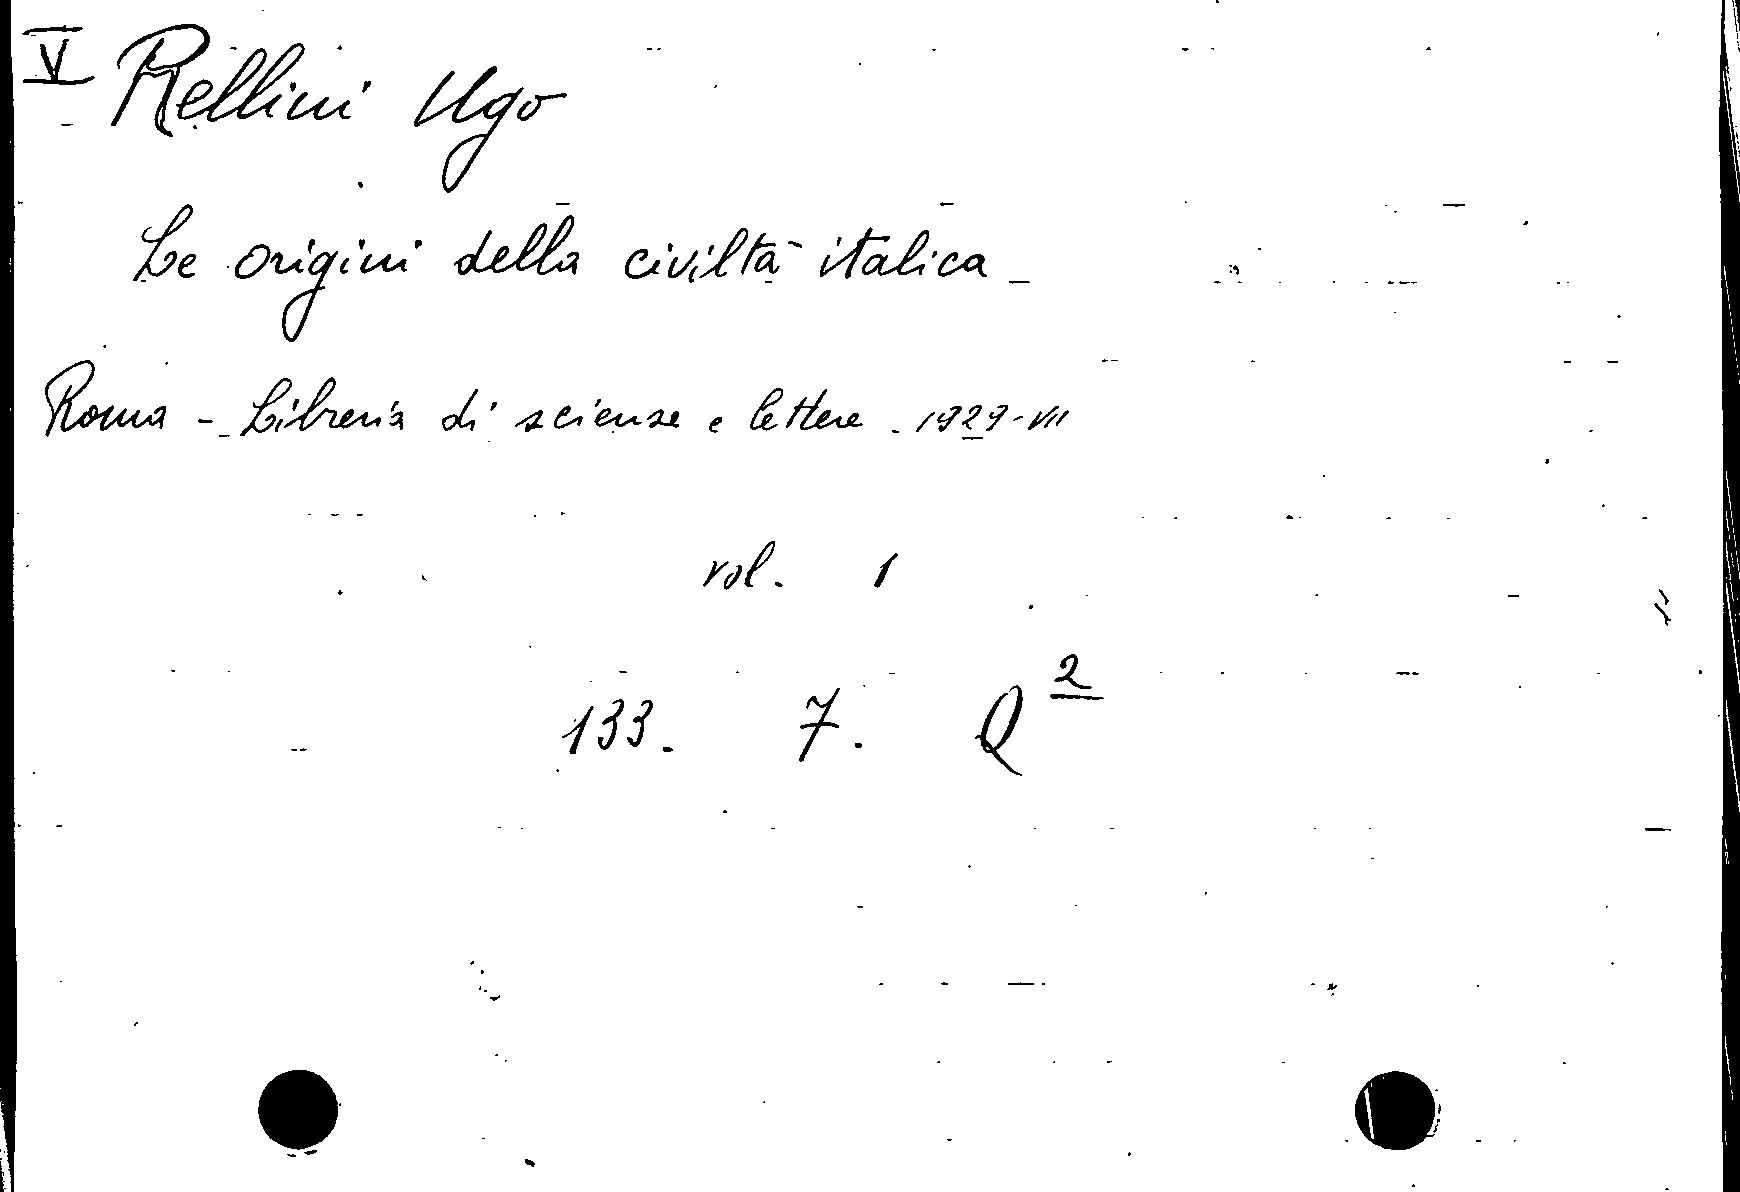 V Rellini Ugo
Le origini della civiltà italica
Roma - Libreria di scienze e lettere - 1929-VII
vol. 1
133. 7. Q 2